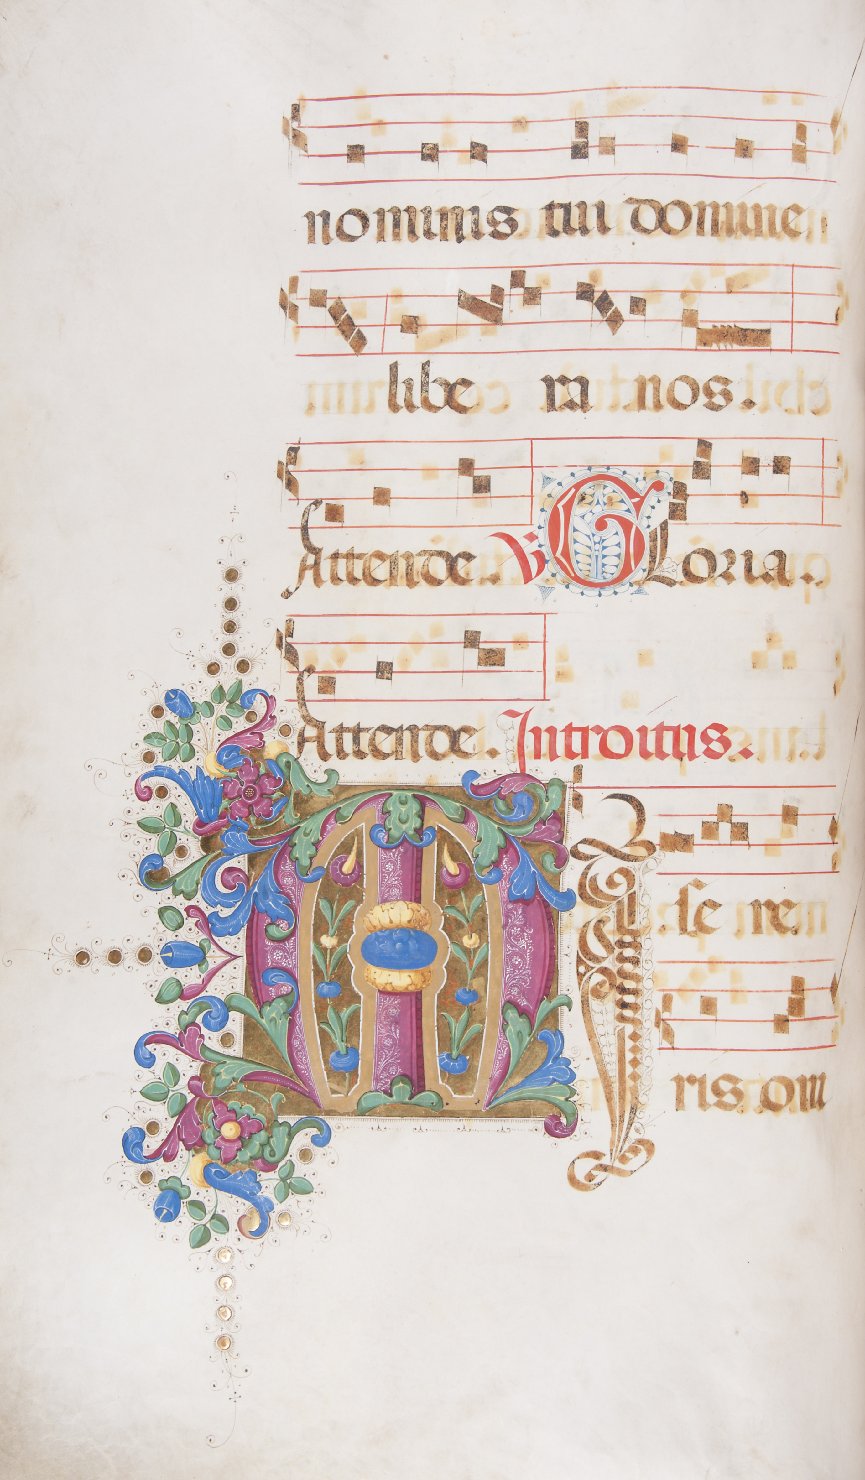 nominis tui domine
libe ra nos.
Attende. V GLoria.
Attende. Introitus.
MIse re
ris om